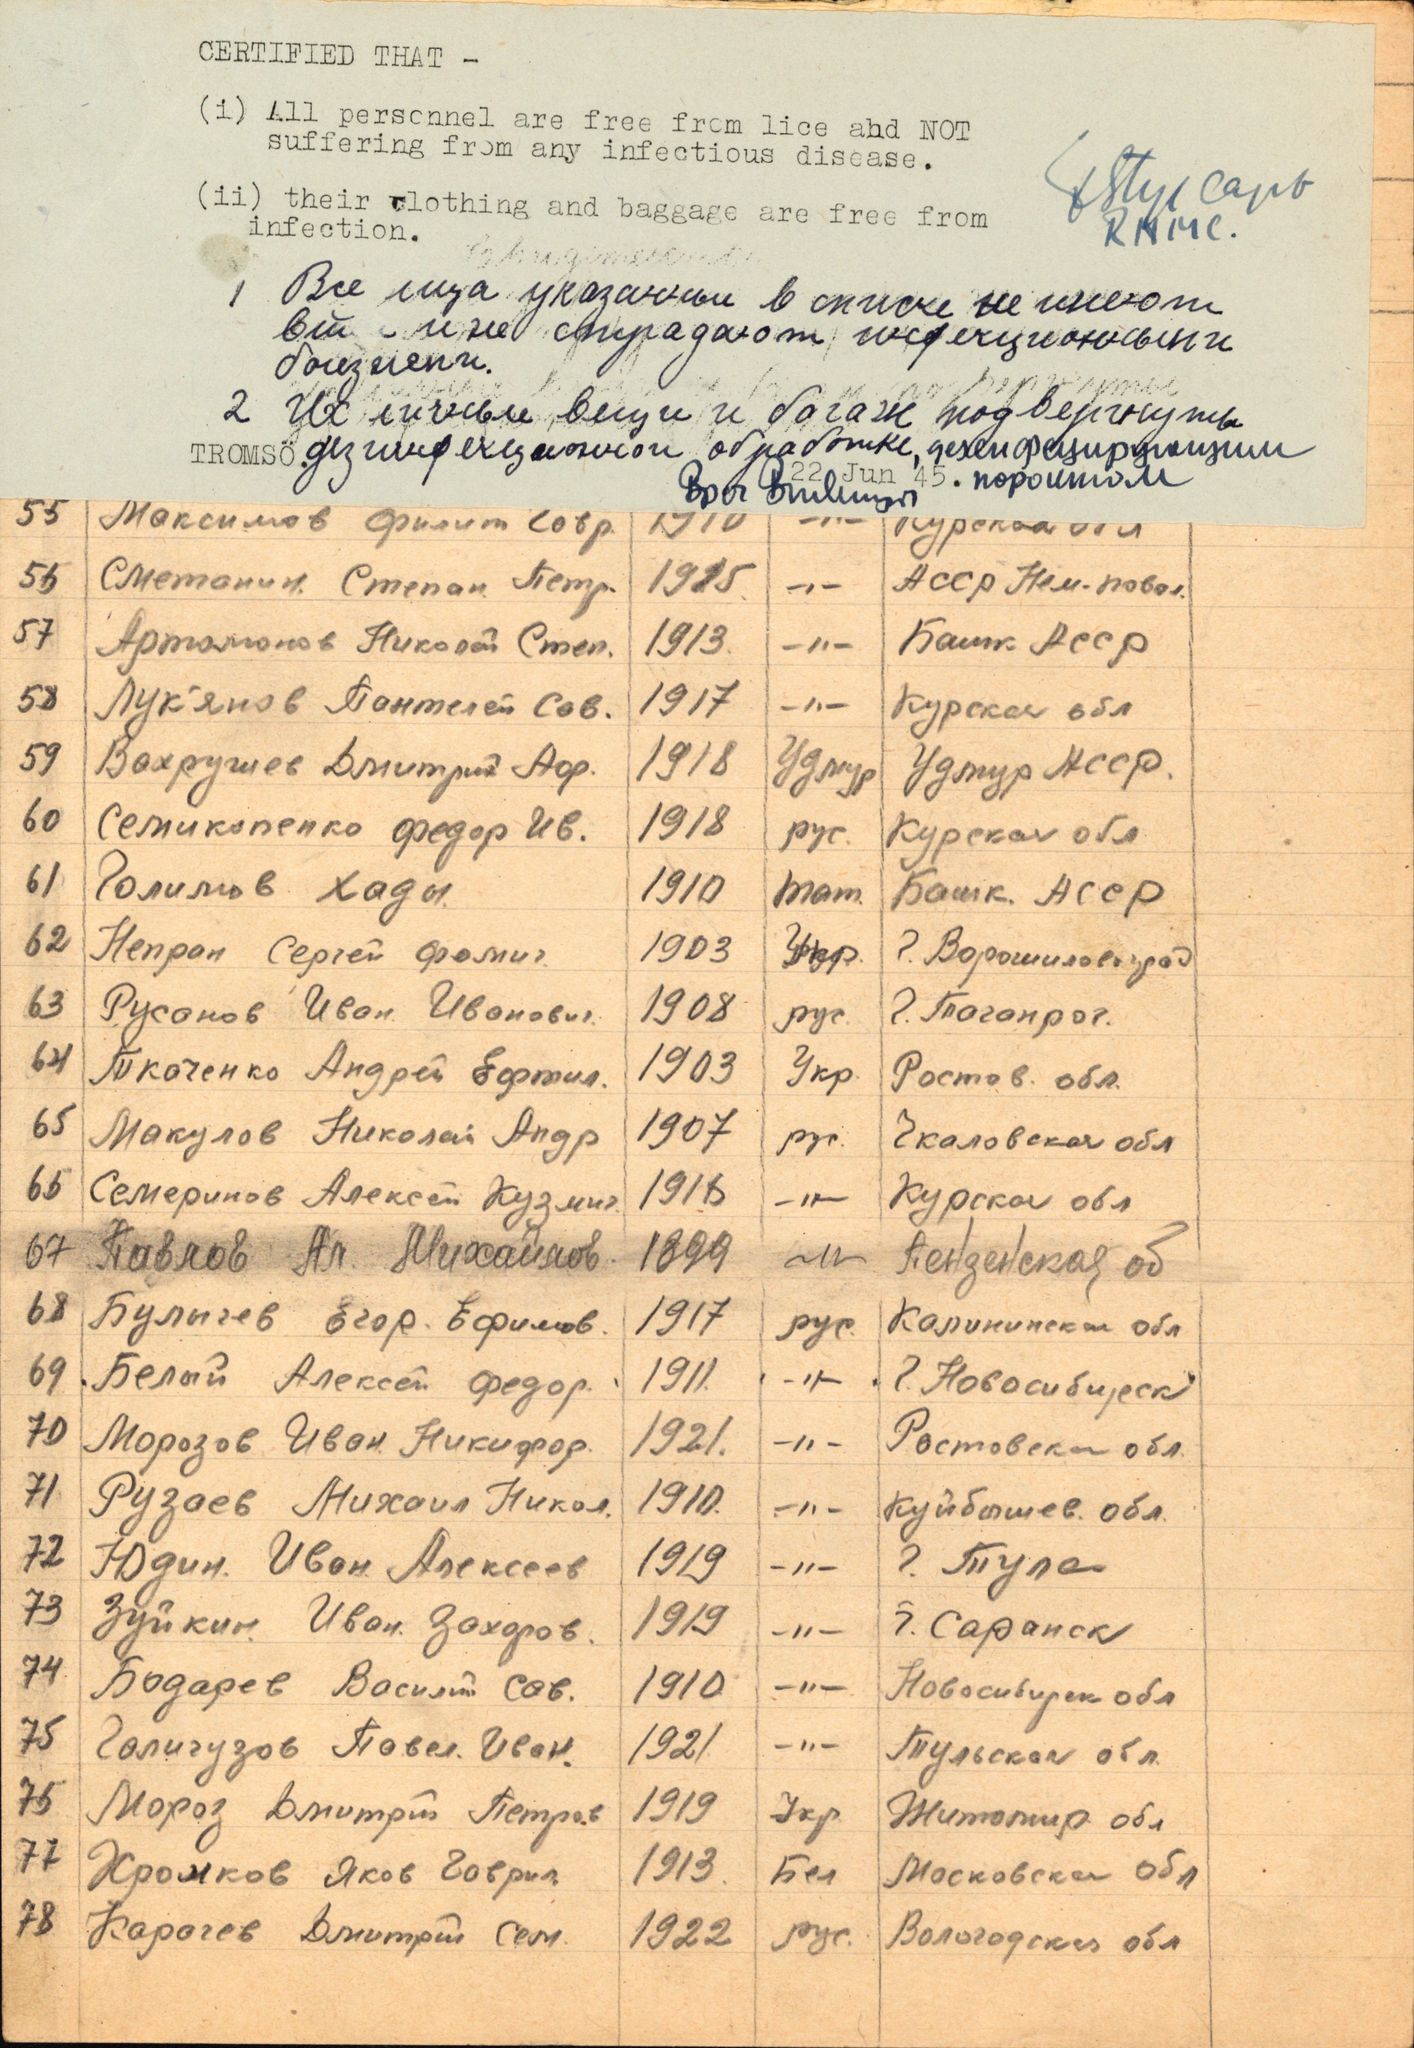 CERTIFIED THAT -
(i) All personnel are free from lice ahd NOT
suffering from any infectious disease.
(ii) their clothing and baggage are free from
infection.
RAMC.
1 Все лица указанные в списке не имеют
и не страдают инфекционными
болезнями.
2 Их личные вещи и багаж подвергнуты
TROMSO. дезинфекционной обработке, дезинфицирующим
22 Jun 45. порошком
Врач
55 Максимов Филип Гавр. 1910 -"- Курская обл
56 Сметанин. Степан Петр. 1925 -"- АССР Нем-повол.
57 Артамонов Николай Степ. 1913. -"- Башк АССР
58 Лук'янов Пантелей Сав. 1917 -"- Курская обл
59 Вахрушев Дмитрий Афр. 1918 Удмур Удмур АССР.
60 Семикопенко Федор Ив. 1918 рус. Курская обл
61 Галимов Хады 1910 тат. Башк. АССР
62 Непран Сергей Фомич 1903 Укр. г. Ворошиловград
63 Русанов Иван Иванович. 1908 рус. г. Таганрог.
64 Ткаченко Андрей Ефтил. 1903 Укр. Ростов. обл.
65 Макулов Николай Андр 1907 рус. Чкаловская обл
66 Семеринов Алексей Кузмич. 1918 -"- Курская обл
67 Павлов Ал. Михайлов. 1899 -"- Пензенская об
68 Булычев Егор. Ефимов. 1917 рус. Калининская обл
69 Белый Алексей Федор. 1911. -"- г. Новосибирск
70 Морозов Иван Никифор. 1921. -"- Ростовская обл.
71 Рузаев Михаил Никол. 1910. -"- Куйбышев. обл.
72 Юдин. Иван Алексеев 1919 -"- г. Тула
73 Зуйкин. Иван. Захаров. 1919 -"- г. Саранск
74 Бодарев Василий Сав. 1910 -"- Новосибирск обл
75 Галигузов Павел. Иван. 1921 -"- Тульская обл.
76 Мороз Дмитрий Петров 1919 Укр Житомир обл
77 Хромков Яков Гаврил 1913. Бел Московская обл
78 Карачев Дмитрий Сем. 1922 рус. Вологодская обл